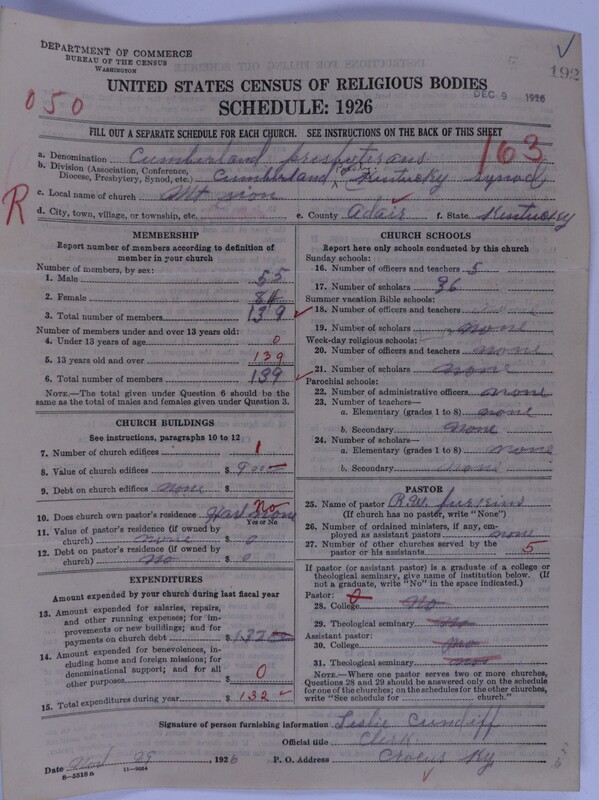 DEPARTMENT OF COMMERCE
BUREAU OF THE CENSUS
WASHINGTON
192
UNITED STATES CENSUS OF RELIGIOUS BODIES
DEC 9 1926
050
SCHEDULE: 1926
FILL OUT A SEPARATE SCHEDULE FOR EACH CHURCH. SEE INSTRUCTIONS ON THE BACK OF THIS SHEET
163
a. Denomination Cumberland presbyterans
b. Division (Association, Conference, Diocese, Presbytery, Synod, etc.) Cumberland Kentucky Synod
R
c. Local name of church Mt zion
d. City, town, village, or township, etc. e. County Adair f. State Kentucky
MEMBERSHIP
Report number of members according to definition of member in your church
Number of members, by sex:
1. Male 55
2. Female 84
3. Total number of members 139
Number of members under and over 13 years old:
4. Under 13 years of age 0
5. 13 years old and over 139
6. Total number of members 139
NOTE.—The total given under Question 6 should be the same as the total of males and females given under Question 3.
CHURCH BUILDINGS
See instructions, paragraphs 10 to 12
7. Number of church edifices 1
8. Value of church edifices $ 900
9. Debt on church edifices none $
10. Does church own pastor's residence No
Yes or No
11. Value of pastor's residence (if owned by church) none $ 0
12. Debt on pastor's residence (if owned by church) No $ 0
EXPENDITURES
Amount expended by your church during last fiscal year
13. Amount expended for salaries, repairs, and other running expenses; for improvements or new buildings; and for payments on church debt $ 132
14. Amount expended for benevolences, including home and foreign missions; for denominational support; and for all other purposes $ 0
15. Total expenditures during year $ 132
CHURCH SCHOOLS
Report here only schools conducted by this church
Sunday schools:
16. Number of officers and teachers 5
17. Number of scholars 36
Summer vacation Bible schools:
18. Number of officers and teachers none
19. Number of scholars none
Week-day religious schools:
20. Number of officers and teachers none
21. Number of scholars none
Parochial schools:
22. Number of administrative officers none
23. Number of teachers—
a. Elementary (grades 1 to 8) none
b. Secondary none
24. Number of scholars—
a. Elementary (grades 1 to 8) none
b. Secondary none
PASTOR
25. Name of pastor R.W.
(If church has no pastor, write "None")
26. Number of ordained ministers, if any, employed as assistant pastors none
27. Number of other churches served by the pastor or his assistants 5
If pastor (or assistant pastor) is a graduate of a college or theological seminary, give name of institution below. (If not a graduate, write "No" in the space indicated.)
Pastor: 0
28. College No
29. Theological seminary No
Assistant pastor:
30. College No
31. Theological seminary No
NOTE.—Where one pastor serves two or more churches, Questions 28 and 29 should be answered only on the schedule for one of the churches; on the schedules for the other churches, write "See schedule for church."
Signature of person furnishing information Leslie Cundiff
Official title Clerk
Date Nov 29, 1926 P. O. Address Crocus Ky
8-5518a 11-9054